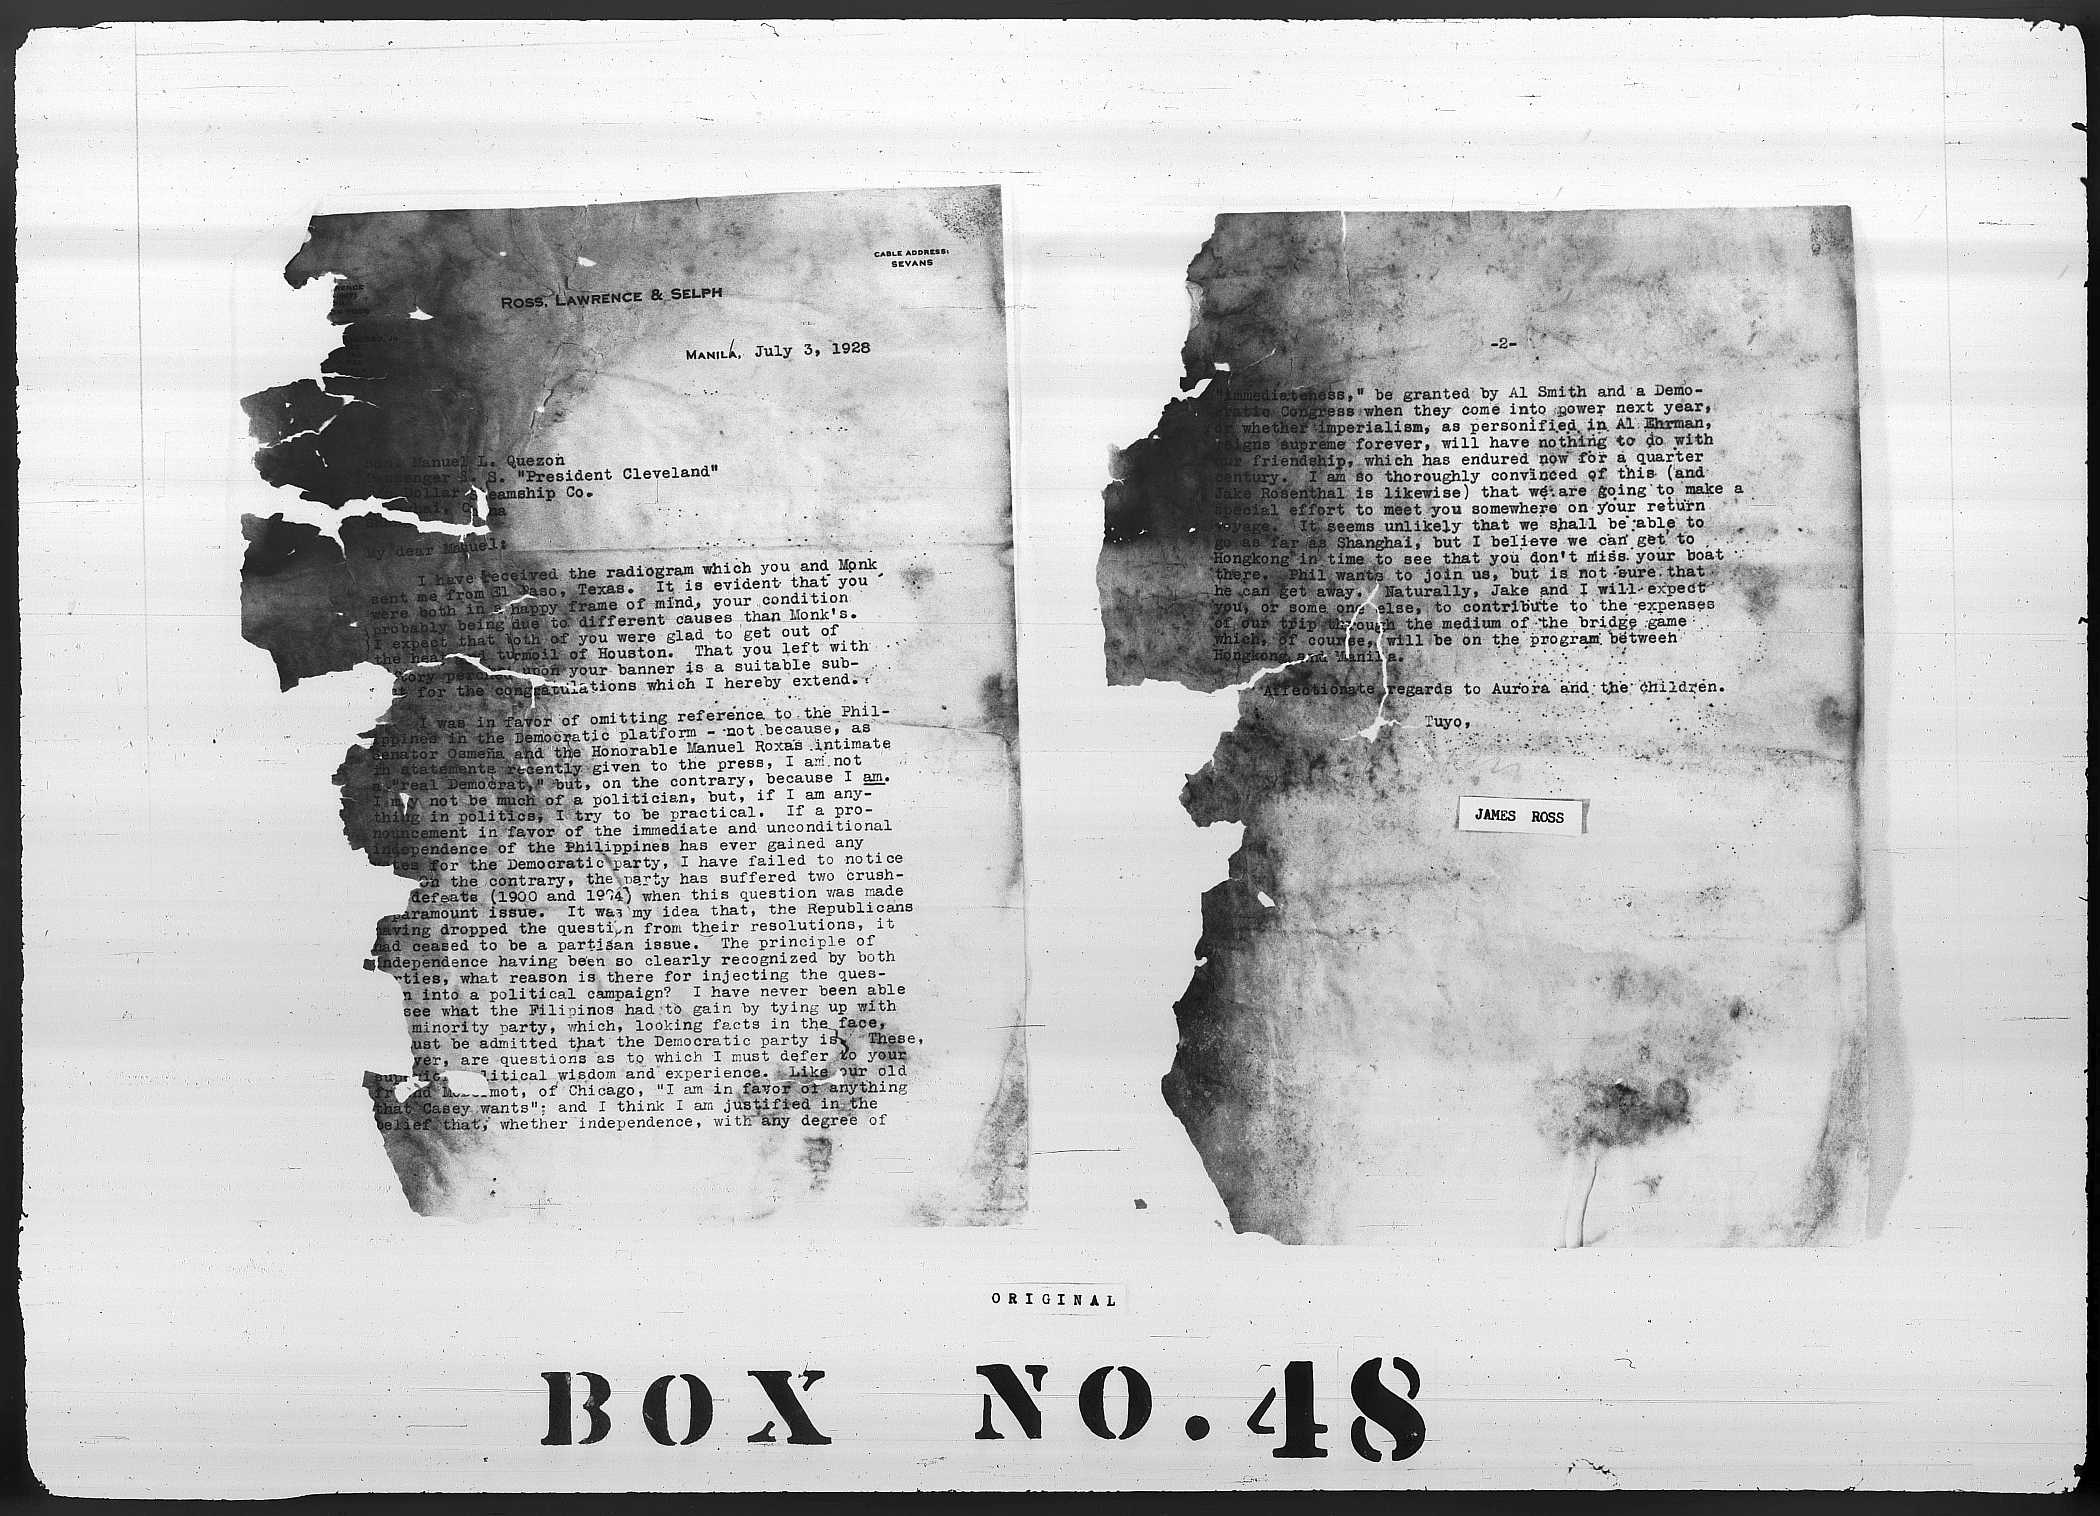 CABLE ADDRESS:
SEVANS
ROSS, LAWRENCE & SELPH
MANILA, July 3, 1928
Manuel L. Quezon
S. S. "President Cleveland"
Dollar Steamship Co.
My dear Manuel:
I have received the radiogram which you and Monk
sent me from El Paso, Texas. It is evident that you
were both in a happy frame of mind, your condition
probably being due to different causes than Monk's.
I expect that both of you were glad to get out of
the turmoil of Houston. That you left with
upon your banner is a suitable sub-
for the congratulations which I hereby extend.
I was in favor of omitting reference to the Phil-
ippines in the Democratic platform - not because, as
Senator Osmeña and the Honorable Manuel Roxas intimate
in statements recently given to the press, I am not
a "real Democrat," but, on the contrary, because I am.
I may not be much of a politician, but, if I am any-
thing in politics, I try to be practical. If a pro-
nouncement in favor of the immediate and unconditional
independence of the Philippines has ever gained any
for the Democratic party, I have failed to notice
On the contrary, the party has suffered two crush-
defeats (1900 and 1924) when this question was made
paramount issue. It was my idea that, the Republicans
having dropped the question from their resolutions, it
had ceased to be a partisan issue. The principle of
independence having been so clearly recognized by both
what reason is there for injecting the ques-
into a political campaign? I have never been able
see what the Filipinos had to gain by tying up with
minority party, which, looking facts in the face,
ust be admitted that the Democratic party is. These,
ver, are questions as to which I must defer to your
litical wisdom and experience. Like our old
mot, of Chicago, "I am in favor of anything
that Casey wants"; and I think I am justified in the
belief that, whether independence, with any degree of
-2-
"immediateness," be granted by Al Smith and a Demo-
cratic Congress when they come into power next year,
or whether imperialism, as personified in Al Ehrman,
reigns supreme forever, will have nothing to do with
our friendship, which has endured now for a quarter
century. I am so thoroughly convinced of this (and
Jake Rosenthal is likewise) that we are going to make a
special effort to meet you somewhere on your return
voyage. It seems unlikely that we shall be able to
go as far as Shanghai, but I believe we can get to
Hongkong in time to see that you don't miss your boat
there. Phil wants to join us, but is not sure that
he can get away. Naturally, Jake and I will expect
you, or some one else, to contribute to the expenses
of our trip through the medium of the bridge game
which, of course, will be on the program between
Hongkong and Manila.
Affectionate regards to Aurora and the children.
Tuyo,
JAMES ROSS
ORIGINAL
BOX NO. 48